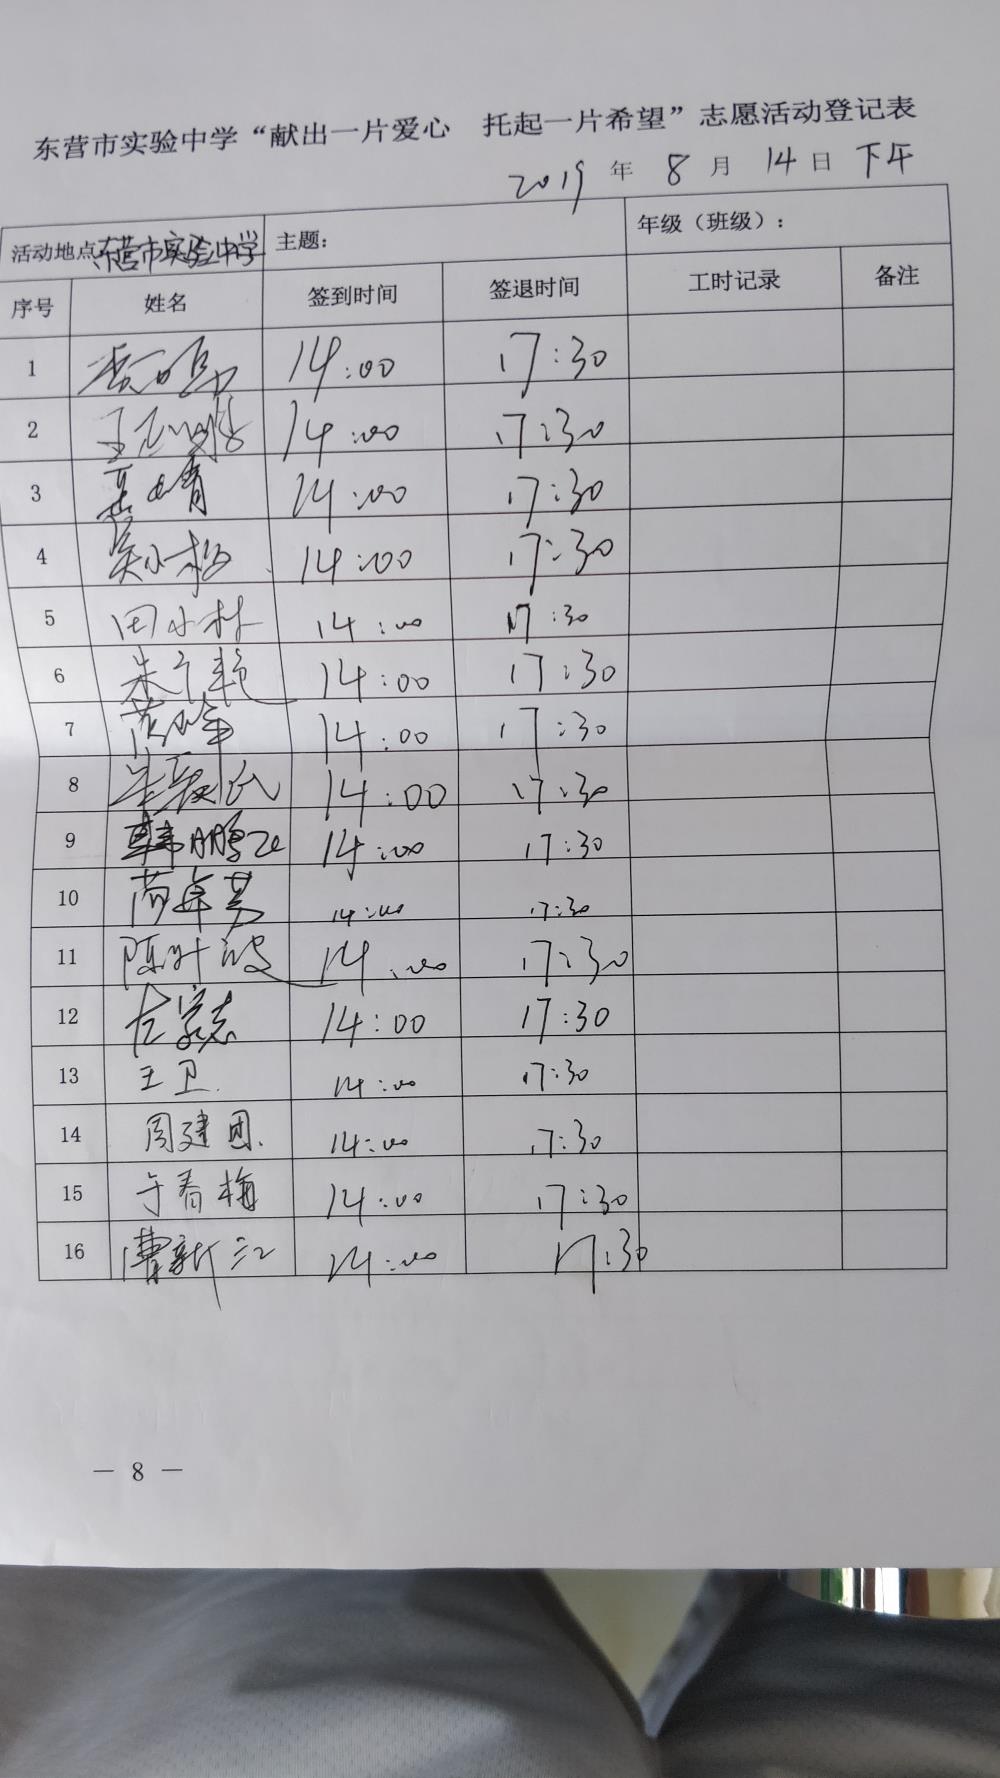 东营市实验中学“献出一片爱心 托起一片希望”志愿活动登记表
2019 年 8 月 14 日 下午
活动地点 东营市实验中学 主题： 年级（班级）：
序号 姓名 签到时间 签退时间 工时记录 备注
1 14:00 17:30
2 14:00 17:30
3 14:00 17:30
4 14:00 17:30
5 田小林 14:00 17:30
6 14:00 17:30
7 14:00 17:30
8 14:00 17:30
9 韩鹏飞 14:00 17:30
10 14:00 17:30
11 陈叶波 14:00 17:30
12 14:00 17:30
13 王卫 14:00 17:30
14 周建国 14:00 17:30
15 于春梅 14:00 17:30
16 曹新江 14:00 17:30
— 8 —